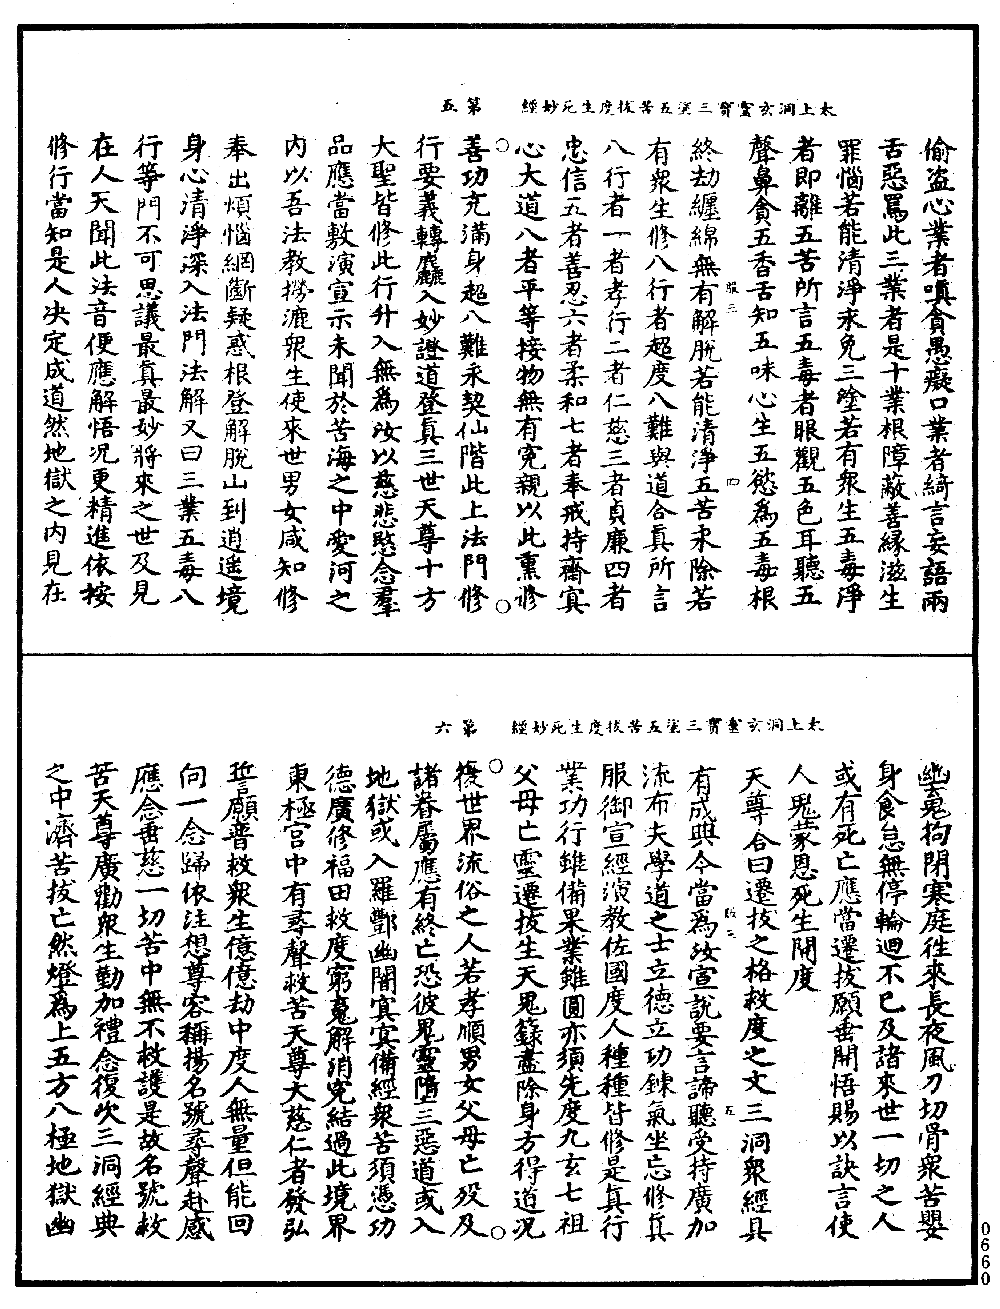 太上洞玄靈寶三塗五苦拔度生死妙經　第五
偷盗心業者嗔貪愚癡口業者綺言妄語兩
舌惡罵此三業者是十業根障蔽善緣滋生
罪惱若能清淨永免三塗若有衆生五毒淨
者即離五苦所言五毒者眼觀五色耳聽五
聲鼻貪五香舌知五味心生五慾為五毒根
終劫纏綿無有解脫若能清淨五苦永除若
有衆生修八行者超度八難與道合真所言
八行者一者孝行二者仁慈三者貞廉四者
忠信五者善忍六者柔和七者奉戒持齋冥
心大道八者平等接物無有寃親以此熏修
善功充滿身超八難永契仙階此上法門修
行要義轉麤入妙證道登真三世天尊十方
大聖皆修此行升入無為汝以慈悲愍念羣
品應當敷演宣示未聞於苦海之中愛河之
內以吾法教撈漉衆生使來世男女咸知修
奉出煩惱網斷疑惑根登解脫山到逍遙境
身心清淨深入法門法解又曰三業五毒八
行等門不可思議最真最妙將來之世及見
在人天聞此法音便應解悟况更精進依按
修行當知是人決定成道然地獄之內見在
服三
四
太上洞玄靈寶三塗五苦拔度生死妙經　第六
幽㝠拘閉寒庭徃來長夜風刀切骨衆苦嬰
身食怠無停輪迴不已及諸來世一切之人
或有死亡應當遷拔願垂開悟賜以訣言使
人鬼蒙恩死生開度
天尊合曰遷拔之格救度之文三洞衆經具
有成典今當爲汝宣說要言諦聽受持廣加
流布夫學道之士立德立功鍊氣坐忘修真
服御宣經演教佐國度人種種皆修是真行
業功行雖備果業雖圓亦須先度九玄七祖
父母亡靈遷拔生天鬼籙盡除身方得道况
復世界流俗之人若孝順男女父母亡歿及
諸眷屬應有終亡恐彼鬼靈墮三惡道或入
地獄或入羅酆幽闇冥冥備經衆苦須憑功
德廣修福田救度窮寃解消寃結過此境界
東極宮中有尋聲救苦天尊大慈仁者發弘
誓願普救衆生億億劫中度人無量但能回
向一念歸依注想尊容稱揚名號尋聲赴感
應念垂慈一切苦中無不救護是故名號救
苦天尊廣勸衆生勤加禮念復次三洞經典
之中濟苦拔亡然燈爲上五方八極地獄幽
五
0660